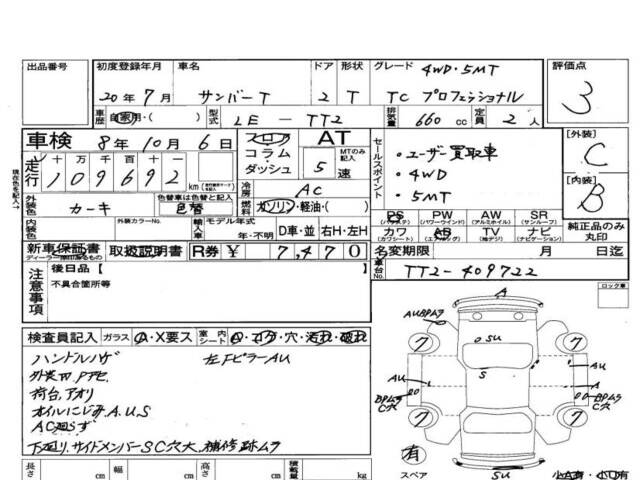 出品番号 初度登録年月 車名 ドア 形状 グレード 4WD・5MT 評価点
20年 7月 サンバーT 2 T TC プロフェッショナル 3
車歴 自家用・( ) 型式 LE-TT2 排気量 660 cc 定員 2人
車検 8年 10月 6日 フロア AT セールスポイント [外装] C
走行 十万 万 千 百 十 一 コラム MTのみ記入 ・ユーザー買取車
109692 km ダッシュ 5速 ・4WD [内装] B
冷房 AC ・5MT
外装色 カーキ 色替車は色替と記入 色替 燃料 ガソリン・軽油・( )
PS (パワステ) PW (パワーウインド) AW (アルミホイル) SR (サンルーフ)
内装色 外装カラーNo. 輸入車 モデル年式 年・不明 D車・並 右H・左H カワ (カワシート) AB (エアバッグ) TV (地デジ) ナビ (ナビゲーション) 純正品のみ丸印
新車保証書 ディーラー印のあるもの 取扱説明書 R券 ¥ 7,470 名変期限 月 日迄
車台No. TT2-409722
注意事項 後日品【
不具合箇所等
ロック車
検査員記入 ガラス A・X要ス 室内 シート コゲ・穴・汚れ・破れ
ハンドルハゲ 左FピラーAU
荷台、アオリ
オイルにじみ A.U.S
AC廻らず
下廻り、サイドメンバーSC穴大、補修跡ムラ
長さ cm 幅 cm 高さ cm 積載量 kg
A
AUBPムラ
7 7
SU
S
AU AU
A
BPムラ C穴 BPムラ C穴
7 7
有
スペア SU 小A有・小U有